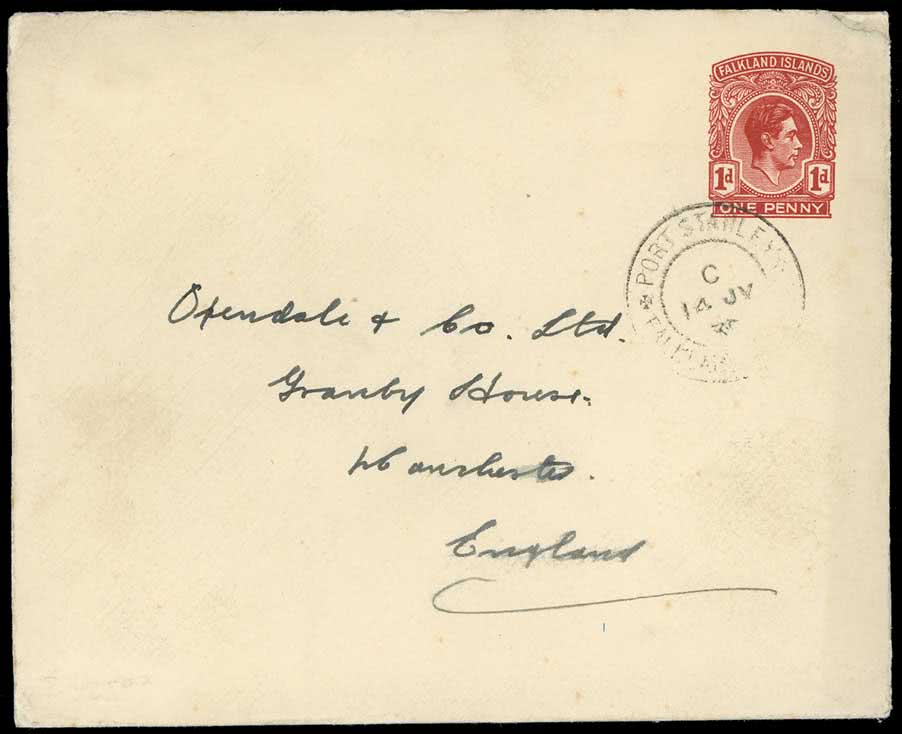 FALKLAND ISLANDS
1d 1d
ONE PENNY
PORT STANLEY
C
14 JY
FALKLAND
Oxendale & Co. Ltd.
Granby House.
Manchester.
England